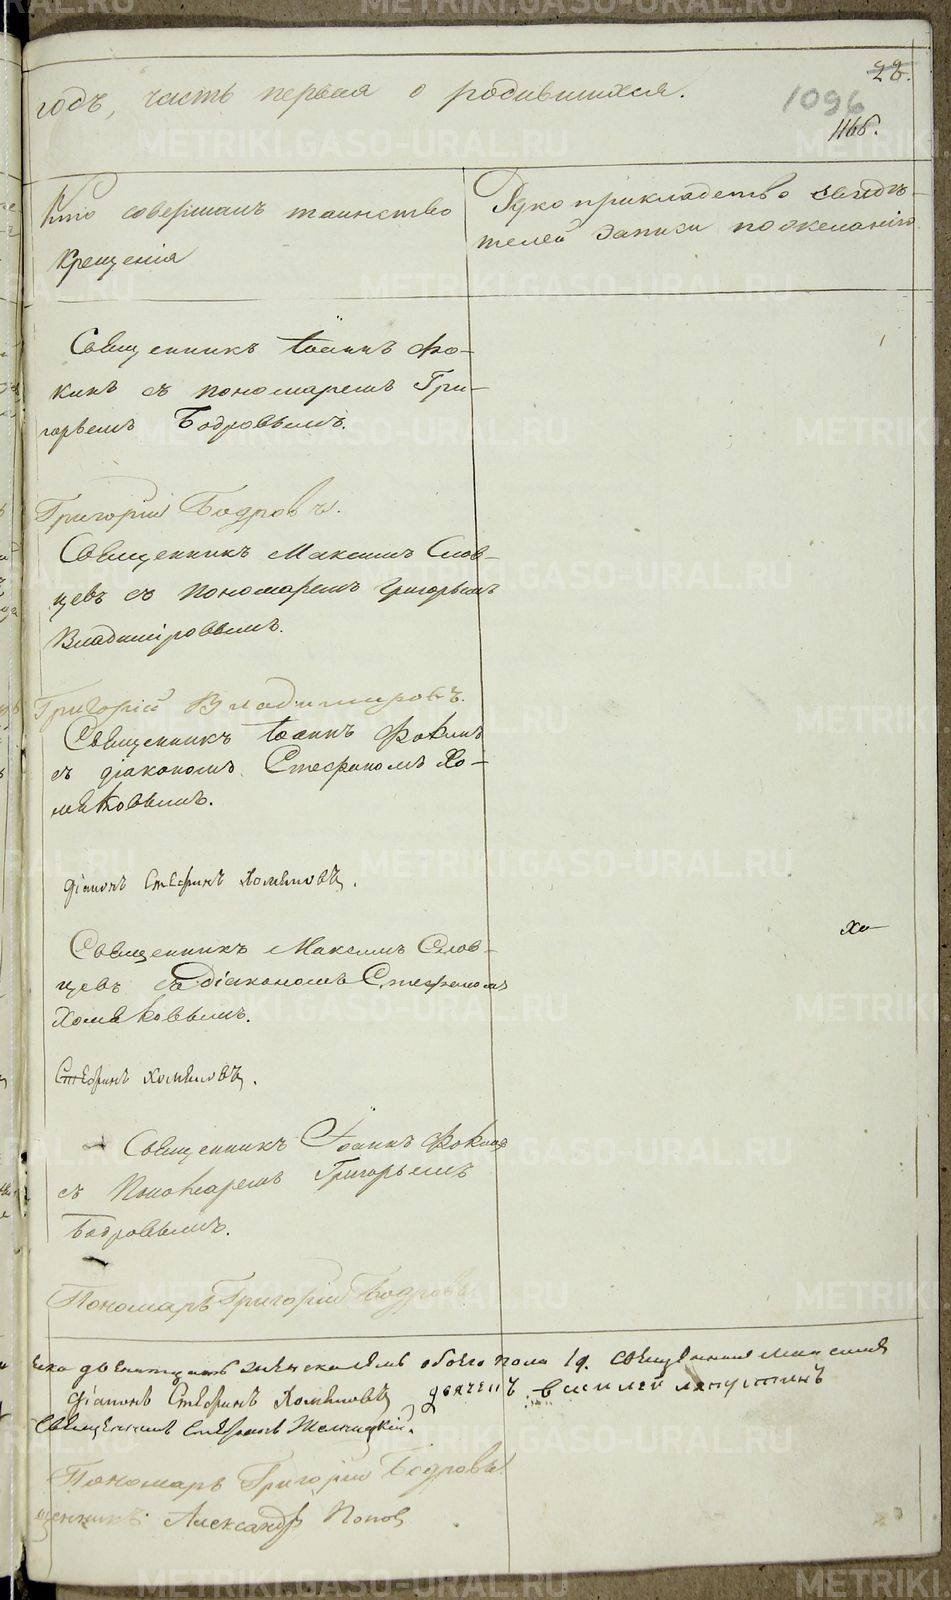 22.
годъ, часть первая о родившихся.
1096
116б.
Кто совершалъ таинство
крещенія
Рукоприкладство свидѣ-
телей записи по желанію
Священникъ Іоаннъ Фо-
кинъ съ пономаремъ Гри-
горьемъ Бодровымъ.
Григорій Бодровъ.
Священникъ Максимъ Слов-
цевъ съ пономаремъ Григорьемъ
Владиміровымъ.
Григорій Владимировъ.
Священникъ Іоаннъ Фокинъ
съ діакономъ Стефаномъ Хо-
мяковымъ.
Діаконъ Стефанъ Хомяковъ.
Хо-
Священникъ Максимъ Слов-
цевъ съ діакономъ Стефаномъ
Хомяковымъ.
Стефанъ Хомяковъ.
Священникъ Іоаннъ Фокинъ
съ Пономаремъ Григорьемъ
Бодровымъ.
Пономарь Григорій Бодровъ
обоего пола 19.
Діаконъ Стефанъ Хомяковъ дьячекъ Василей
Священникъ Стефанъ
Пономарь Григорій Бодровъ
щенникъ Александръ Попов
METRIKI.GASO-URAL.RU